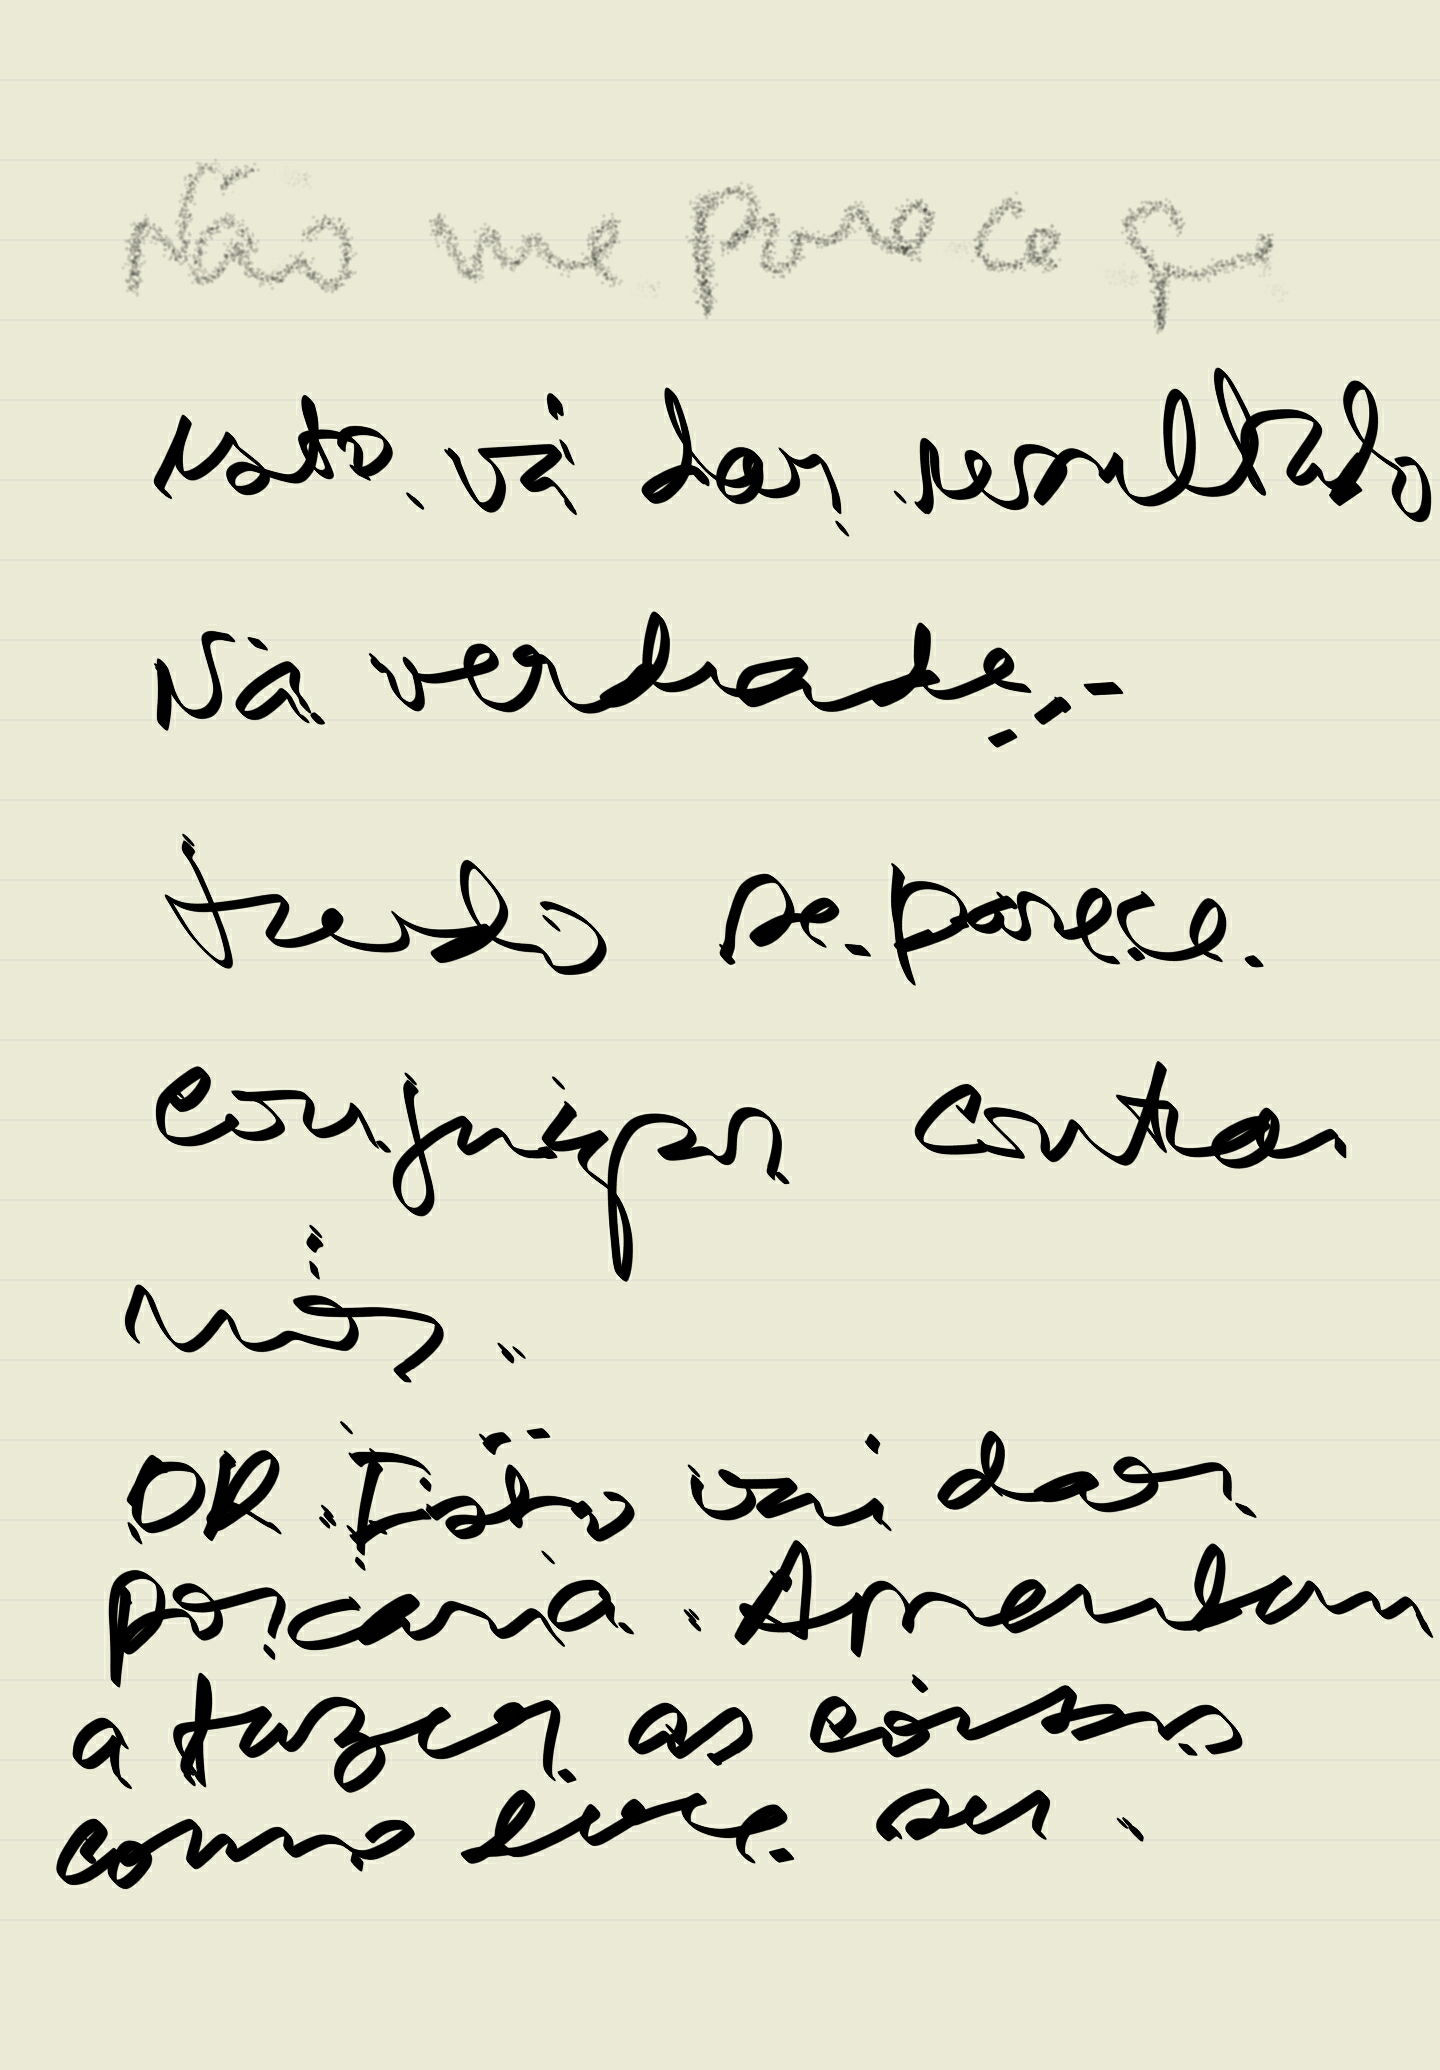 Não me parece q
isto vai dar resultado
Na verdade,
tudo se parece
conjugar contra
nós.
OK Isto vai dar
porcaria. Aprendam
a fazer as coisas
como deve ser.